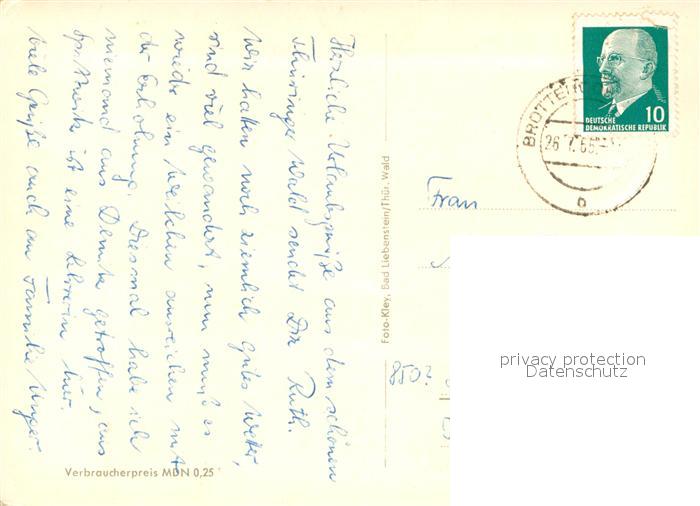 Herzliche Urlaubsgrüße aus dem schönen
Thüringer Wald sendet Dir Ruth.
Wir hatten noch ziemlich gutes Wetter,
sind viel gewandert, nun muß es
wieder ein Weilchen ausreichen mit
der Erholung. Diesmal habe ich
niemand aus getroffen, aus
ist eine Lehrerin hier.
Viele Grüße auch an Familie Unger.
Verbraucherpreis MDN 0,25
Foto-Kley, Bad Liebenstein/Thür. Wald
DEUTSCHE
DEMOKRATISCHE REPUBLIK
10
BROTTERO
26.7.65
c
Frau
850
privacy protection
Datenschutz